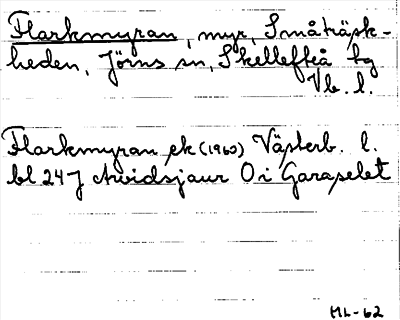 Flarkmyran, myr, Småträsk-
heden, Jörns sn, Skellefteå tg
Vb. l.
Flarkmyran ek (1960) Västerb. l.
bl 24 J Arvidsjaur O i Garapelet
ML-62